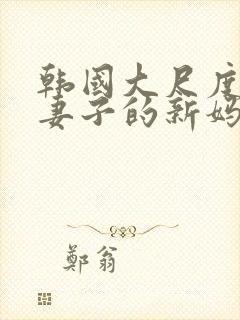 韩國大尺度
妻子的新妈
鄭翁